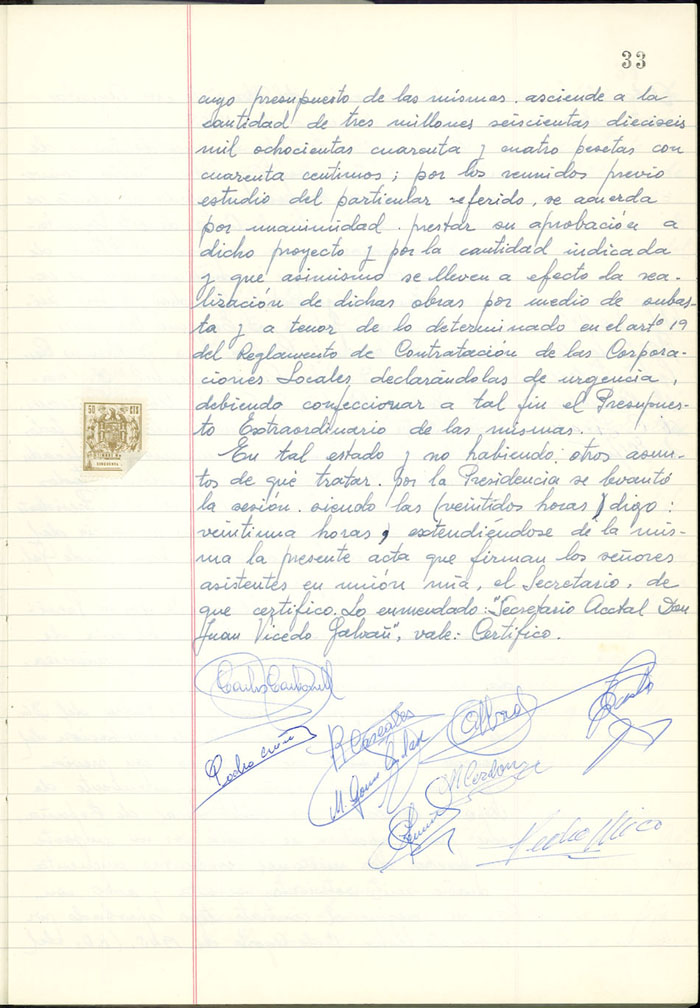 33
cuyo presupuesto de las mismas. asciende a la
cantidad de tres millones seiscientas dieciseis
mil ochocientas cuarenta y cuatro pesetas con
cuarenta centimos; por los reunidos previo
estudio del particular referido, se acuerda
por unanimidad. prestar su aprobación a
dicho proyecto y por la cantidad indicada
y que asimismo se lleven a efecto la rea-
lización de dichas obras por medio de subas-
ta y a tenor de lo determinado en el artº 19
del Reglamento de Contratación de las Corpora-
ciones Locales, declarándolas de urgencia,
debiendo confeccionar a tal fin el Presupues-
to Extraordinario de las mismas.
50 CTS
CINCUENTA
En tal estado y no habiendo otros asun-
tos de que tratar. por la Presidencia se levantó
la sesión. siendo las (veintidos horas) digo:
veintiuna horas, extendiéndose de la mis-
ma la presente acta que firman los señores
asistentes en unión mia, el Secretario, de
que certifico. Lo enmendado: "Secretario Acctal Don
Juan Vicedo Galvañ", vale: Certifico.
Carlos Carbonell
Pedro
B. Cascales
M.
M Cerdan
Pedro Mico